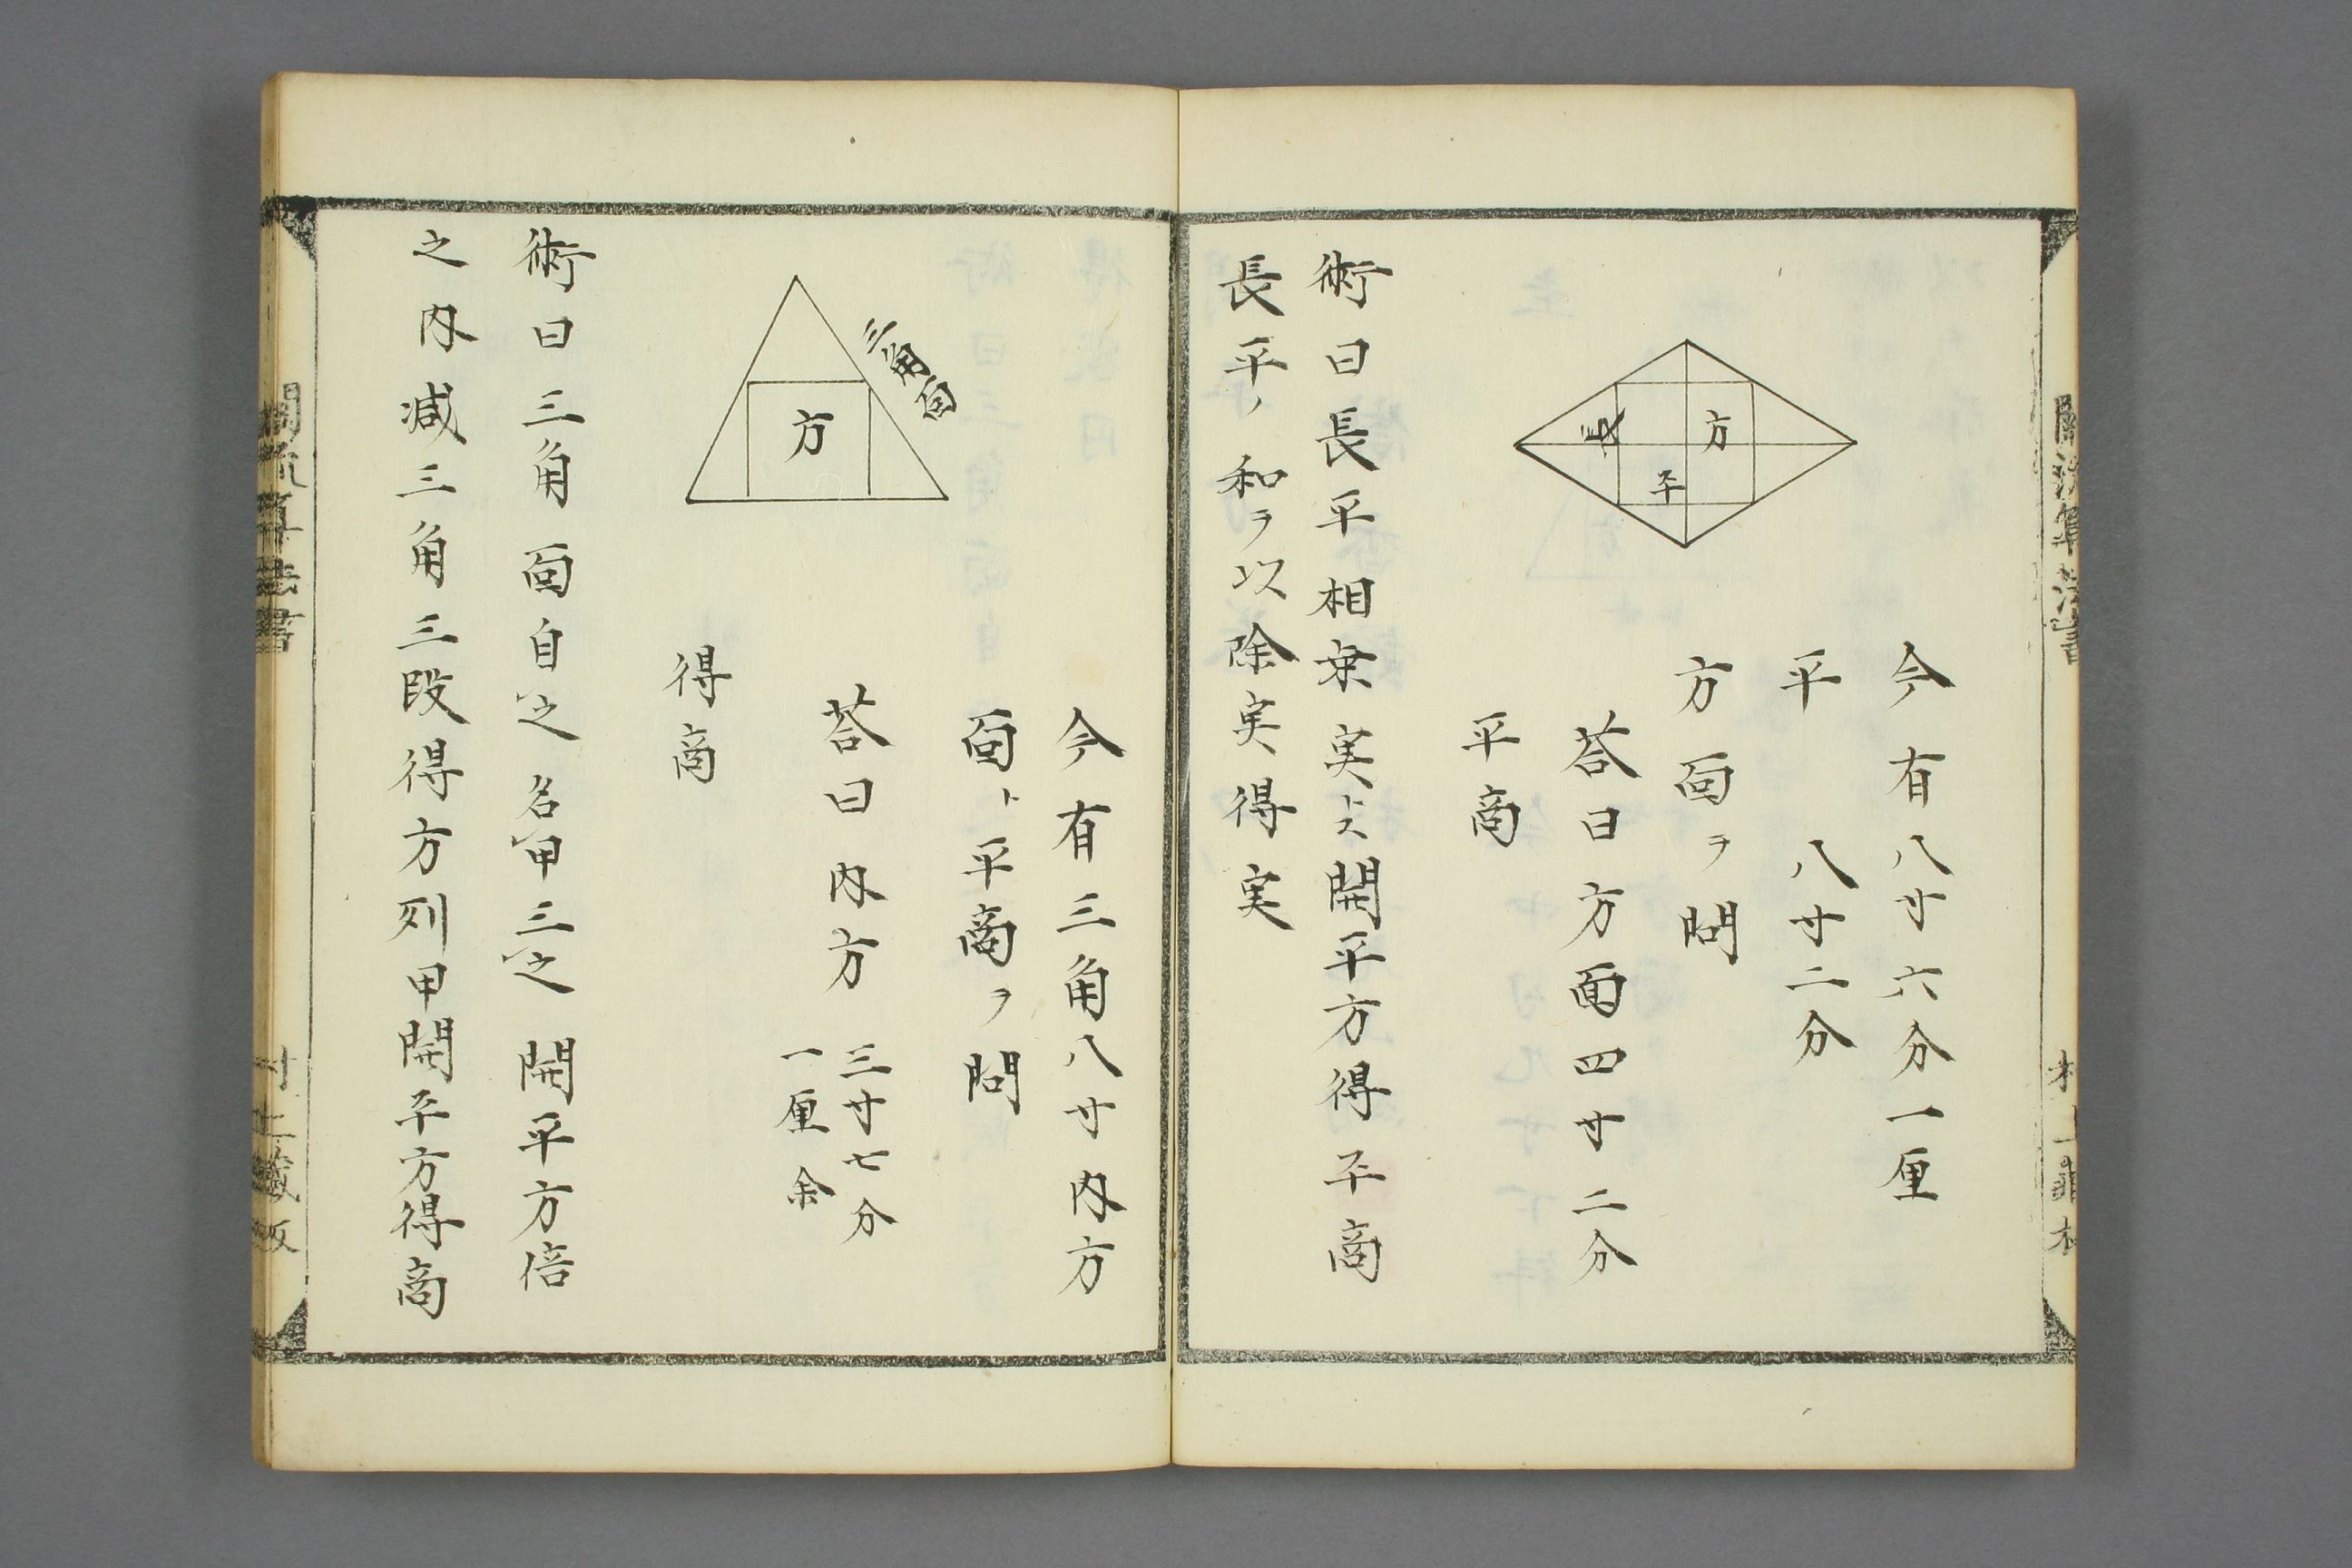 今有八寸六分一厘
平　八寸二分
方面ヲ問
答曰方面四寸二分
平商
術曰長平相乗実トス開平方得平商
長平ノ和ヲ以除実得実
方
長
平
今有三角八寸内方
面ト平商ヲ問
答曰内方三寸七分
一厘余
得商
三角面
方
術曰三角面自之名甲三之開平方倍
之内減三角三段得方列甲開平方得商
関流算法書